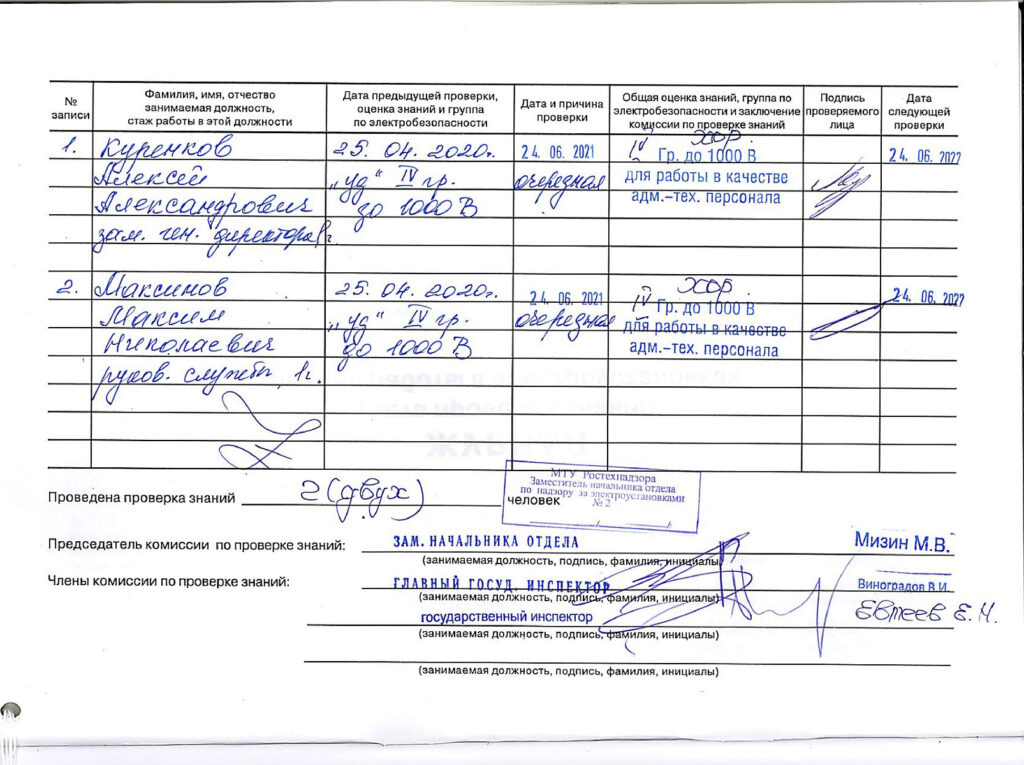 № записи
Фамилия, имя, отчество занимаемая должность, стаж работы в этой должности
Дата предыдущей проверки, оценка знаний и группа по электробезопасности
Дата и причина проверки
Общая оценка знаний, группа по электробезопасности и заключение комиссии по проверке знаний
Подпись проверяемого лица
Дата следующей проверки
1. Куренков 25. 04. 2020г. 24. 06. 2021 IV хор. Гр. до 1000 В 24. 06. 2022
Алексей „уд“ IV гр. очередная для работы в качестве
Александрович до 1000 В адм.-тех. персонала
зам. ген. директора, 1г.
2. Максимов 25. 04. 2020г. 24. 06. 2021 IV хор. Гр. до 1000 В 24. 06. 2022
Максим „уд“ IV гр. очередная для работы в качестве
Николаевич до 1000 В адм.-тех. персонала
руков. службы, 1г.
МТУ Ростехнадзора
Заместитель начальника отдела
по надзору за электроустановками
№ 2
Проведена проверка знаний 2 (двух) человек
Председатель комиссии по проверке знаний: ЗАМ. НАЧАЛЬНИКА ОТДЕЛА Мизин М.В.
(занимаемая должность, подпись, фамилия, инициалы)
Члены комиссии по проверке знаний: ГЛАВНЫЙ ГОСУД. ИНСПЕКТОР Виноградов В.И.
(занимаемая должность, подпись, фамилия, инициалы)
государственный инспектор Евтеев Е. Н.
(занимаемая должность, подпись, фамилия, инициалы)
(занимаемая должность, подпись, фамилия, инициалы)